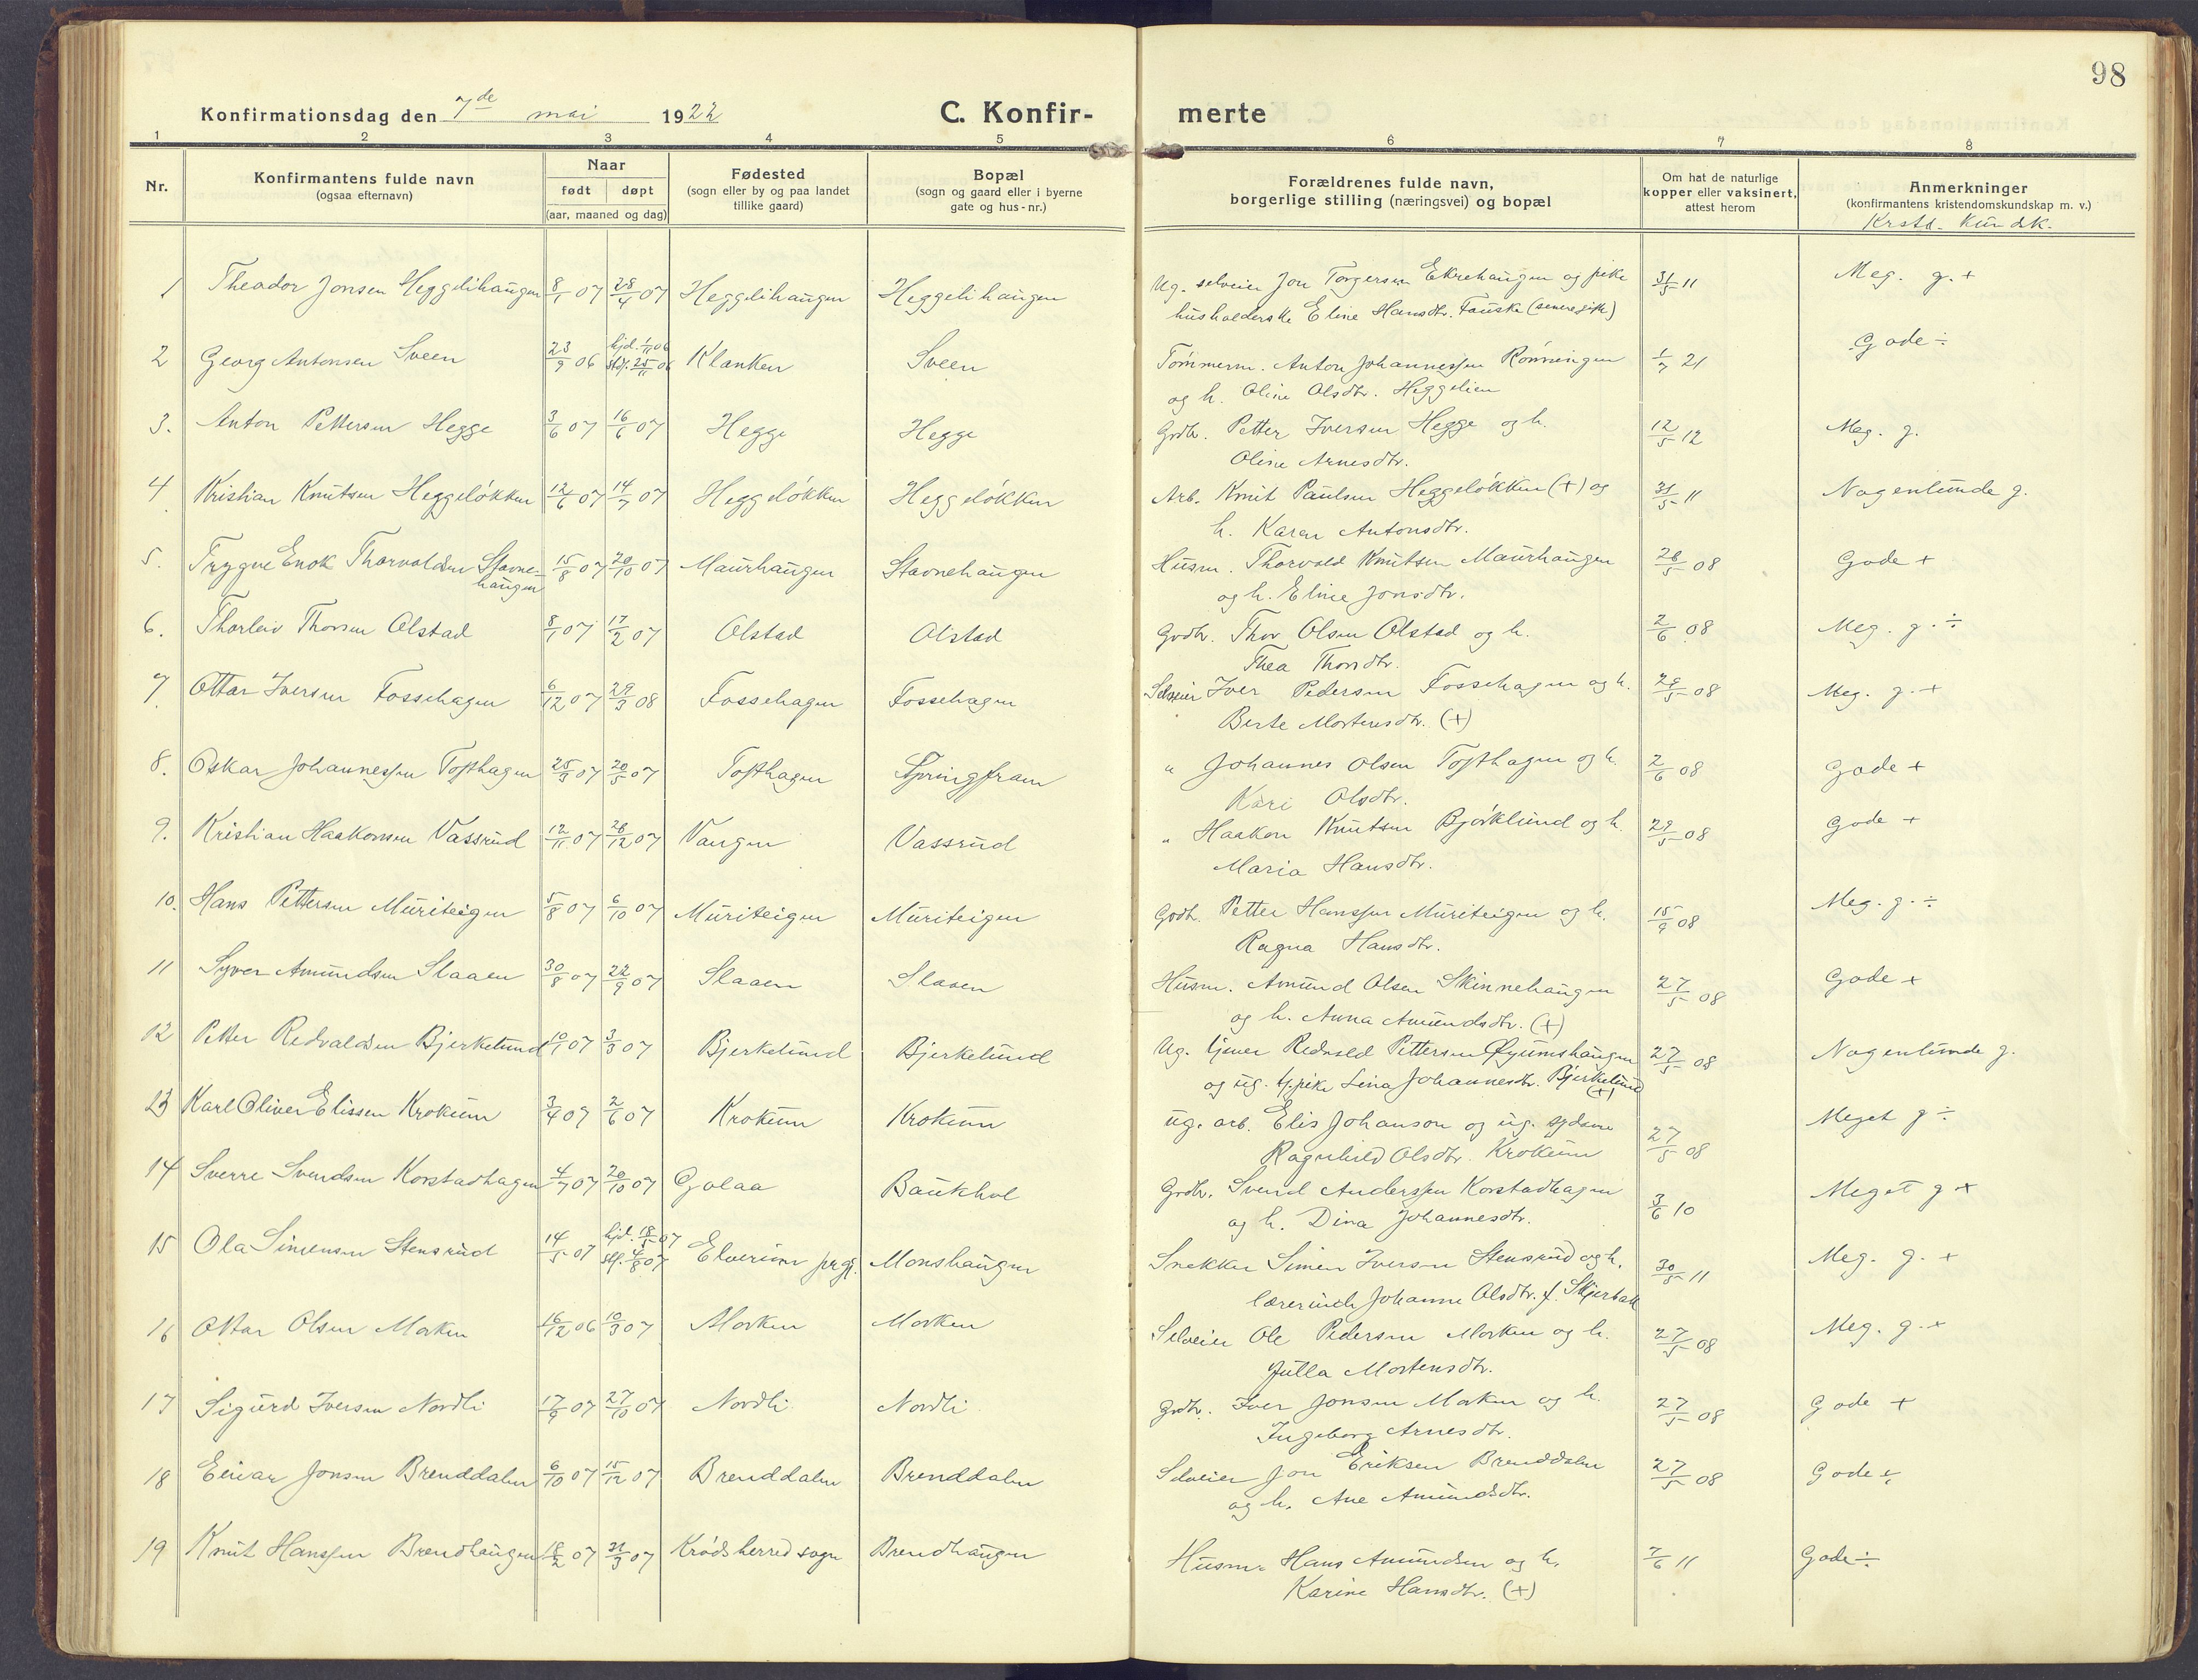 98
Konfirmationsdag den 7de mai 1922 C. Konfir- merte
1 2 3 4 5 6 7 8
Nr. Konfirmantens fulde navn (ogsaa efternavn)
Naar født døpt (aar, maaned og dag)
Fødested (sogn eller by og paa landet tillike gaard)
Bopæl (sogn og gaard eller i byerne gate og hus-nr.)
Forældrenes fulde navn, borgerlige stilling (næringsvei) og bopæl
Om hat de naturlige kopper eller vaksinert, attest herom
Anmerkninger (konfirmantens kristendomskundskap m. v.)
Krstd. Kundsk.
1 Theodor Jonsen Heggelihaugen 8/1 07 28/4 07 Heggelihaugen Heggelihaugen Ug. selveier Jon Torgersen Ekrehaugen og pike 31/5 11 Meg. g. +
husholderske Eline Hansdtr. Fauske (senere gift)
2 Georg Antonsen Sveen 23/9 06 hjd. 1/11 06 Klanken Sveen Tømmerm. Anton Johannessen Rønningen 1/7 21 Gode ÷
stf. 25/11 06 og h. Oline Olsdtr. Heggelien
3. Anton Pettersen Hegge 3/6 07 16/6 07 Hegge Hegge Grdbr. Petter Iversen Hegge og h. 12/5 12 Meg. g.
Oline Arnesdtr.
4 Kristian Knutsen Heggeløkken 12/6 07 14/7 07 Heggeløkken Heggeløkken Arb. Knut Paulsen Heggeløkken (+) og 31/5 11 Nogenlunde g.
h. Karen Antonsdtr.
5. Trygve Enok Thorvaldsen Stavne- 15/8 07 20/10 07 Maurhaugen Stavnehaugen Husm. Thorvald Knutsen Maurhaugen 26/5 08 Gode +
haugen og h. Eline Jonsdtr.
6. Thorleiv Thorsen Olstad 8/1 07 17/2 07 Olstad Olstad Grdbr. Thor Olsen Olstad og h. 2/6 08 Meg. g. ÷
Thea Thorsdtr.
7 Ottar Iversen Fossehagen 6/12 07 29/3 08 Fossehagen Fossehagen Selveier Iver Pedersen Fossehagen og h. 29/5 08 Meg. g. +
Berte Mortensdtr. (+)
8. Oskar Johannessen Tofthagen 25/3 07 20/5 07 Tofthagen Springfram " Johannes Olsen Tofthagen og h. 2/6 08 Gode +
Kari Olsdtr.
9. Kristian Haakonsen Vassrud 12/11 07 26/12 07 Vangen Vassrud " Haakon Knutsen Bjørklund og h. 29/5 08 Gode +
Maria Hansdtr.
10. Hans Pettersen Muriteigen 5/8 07 6/10 07 Muriteigen Muriteigen Grdb. Petter Hanssen Muriteigen og h. 15/9 08 Meg. g. ÷
Ragna Hansdtr.
11 Syver Amundsen Slaaen 30/8 07 22/9 07 Slaaen Slaaen Husm. Amund Olsen Skinnehaugen 27/5 08 Gode +
og h. Anna Amundsdtr. (+)
12 Petter Redvaldsen Bjerkelund 10/1 07 3/3 07 Bjerkelund Bjerkelund Ug. tjener Redvald Pettersen Øyumshaugen 27/5 08 Nogenlunde g.
og ug. tj.pike Lina Johannesdtr. Bjerkelund (+)
13 Karl Oliver Elissen Krokum 3/4 07 2/6 07 Krokum Krokum ug. arb. Elis Johanson og ug. sydame 27/5 08 Meget g ÷
Ragnhild Olsdtr. Krokum
14 Sverre Svendsen Korstadhagen 4/7 07 20/10 07 Golaa Baukhol Grdbr. Svend Anderssen Korstadhagen 3/6 10 Meget g +
og h. Dina Johannesdtr.
15 Ola Simensen Stensrud 14/5 07 hjd. 18/5 07 Elverum prgj. Monshaugen Snekker Simen Iversen Stensrud og h. 30/5 11 Meg. g. +
stf. 4/8 07 lærerinde Johanne Olsdtr. f. Skjerbak
16 Ottar Olsen Morken 16/12 06 10/3 07 Morken Morken Selveier Ole Pedersen Morken og h. 27/5 08 Meg. g. +
Julla Mortensdtr.
17 Sigurd Iversen Nordli 17/9 07 27/10 07 Nordli Nordli Grdbr. Iver Jonsen Morken og h. 27/5 08 Gode +
Ingeborg Arnesdtr.
18 Einar Jonsen Brenddalen 6/10 07 15/12 07 Brenddalen Brenddalen Selveier Jon Eriksen Brenddalen 27/5 08 Gode +
og h. Ane Amundsdtr.
19 Knut Hanssen Brendhaugen 18/2 07 31/3 07 Krødsherred sogn Brendhaugen Husm. Hans Amundsen og h. 7/6 11 Gode ÷
Karine Hansdtr. (+)